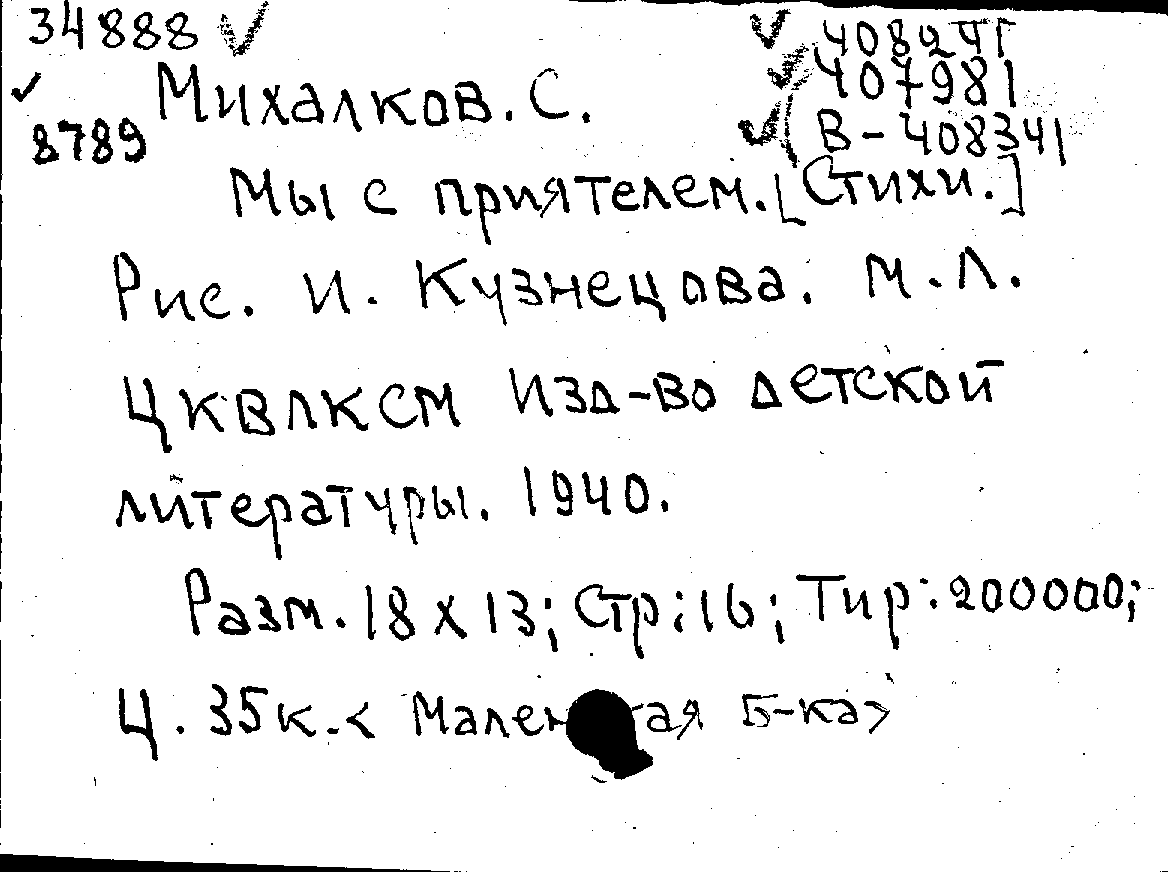 34888 ✓ ✓ 408241
✓ Михалков. С. ✓ 407981
8789 ✓ ( В-408341
Мы с приятелем. [Стихи.]
Рис. И. Кузнецова. М.Л.
ЦКВЛКСМ Изд-во детской
литературы. 1940.
Разм. 18 х 13; Стр: 16; Тир: 200000;
Ц. 35к. < Б-ка>